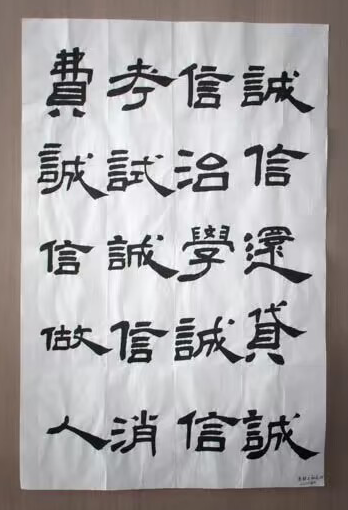 誠信還貸誠
信治學誠信
考試誠信消
費誠信做人